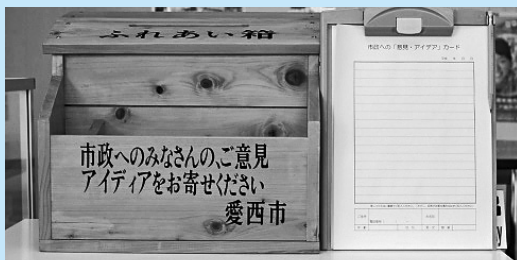 ふれあい箱
市政へのみなさんの、ご意見
アイディアをお寄せください
愛西市
市政への「意見・アイデア」カード